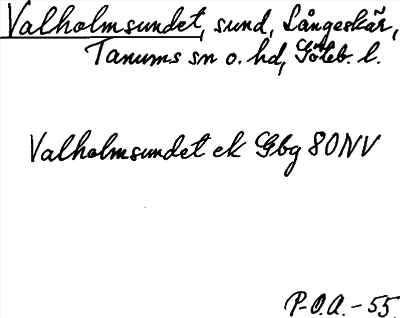 Valholmsundet, sund, Långeskär,
Tanums sn o. hd, Göteb. l.
Valholmsundet ek Gbg 80NV
P-O.A.-55.